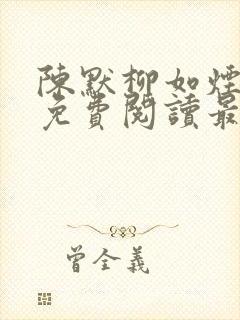 陳默柳如煙
免費閱讀最
曾全義